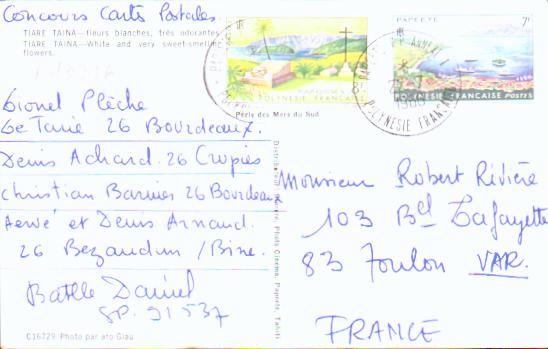 Concours Cartes Postales.
TIARE TAINA—fleurs blanches, très odorantes
TIARE TAINA—White and very sweet-smelling
flowers.
Lionel Plèche
Le Tarie 26 Bourdeaux.
Denis Achard. 26 Crupies
Christian Barnier 26 Bourdeaux
Hervé et Denis Arnaud.
26 Bezaudun / Bine.
Batlle Daniel
SP. 91537
C16729 Photo par ato Giau
Perle des Mers du Sud
Photo Cinema, Papeete, Tahiti
MARQUISES
8F
POLYNESIE FRANÇAISE
PAPEETE
7F
POLYNESIE FRANÇAISE POSTES
POLYNESIE FRANÇAISE
Monsieur Robert Rivière
103 Bd Lafayette
83 Toulon VAR.
FRANCE